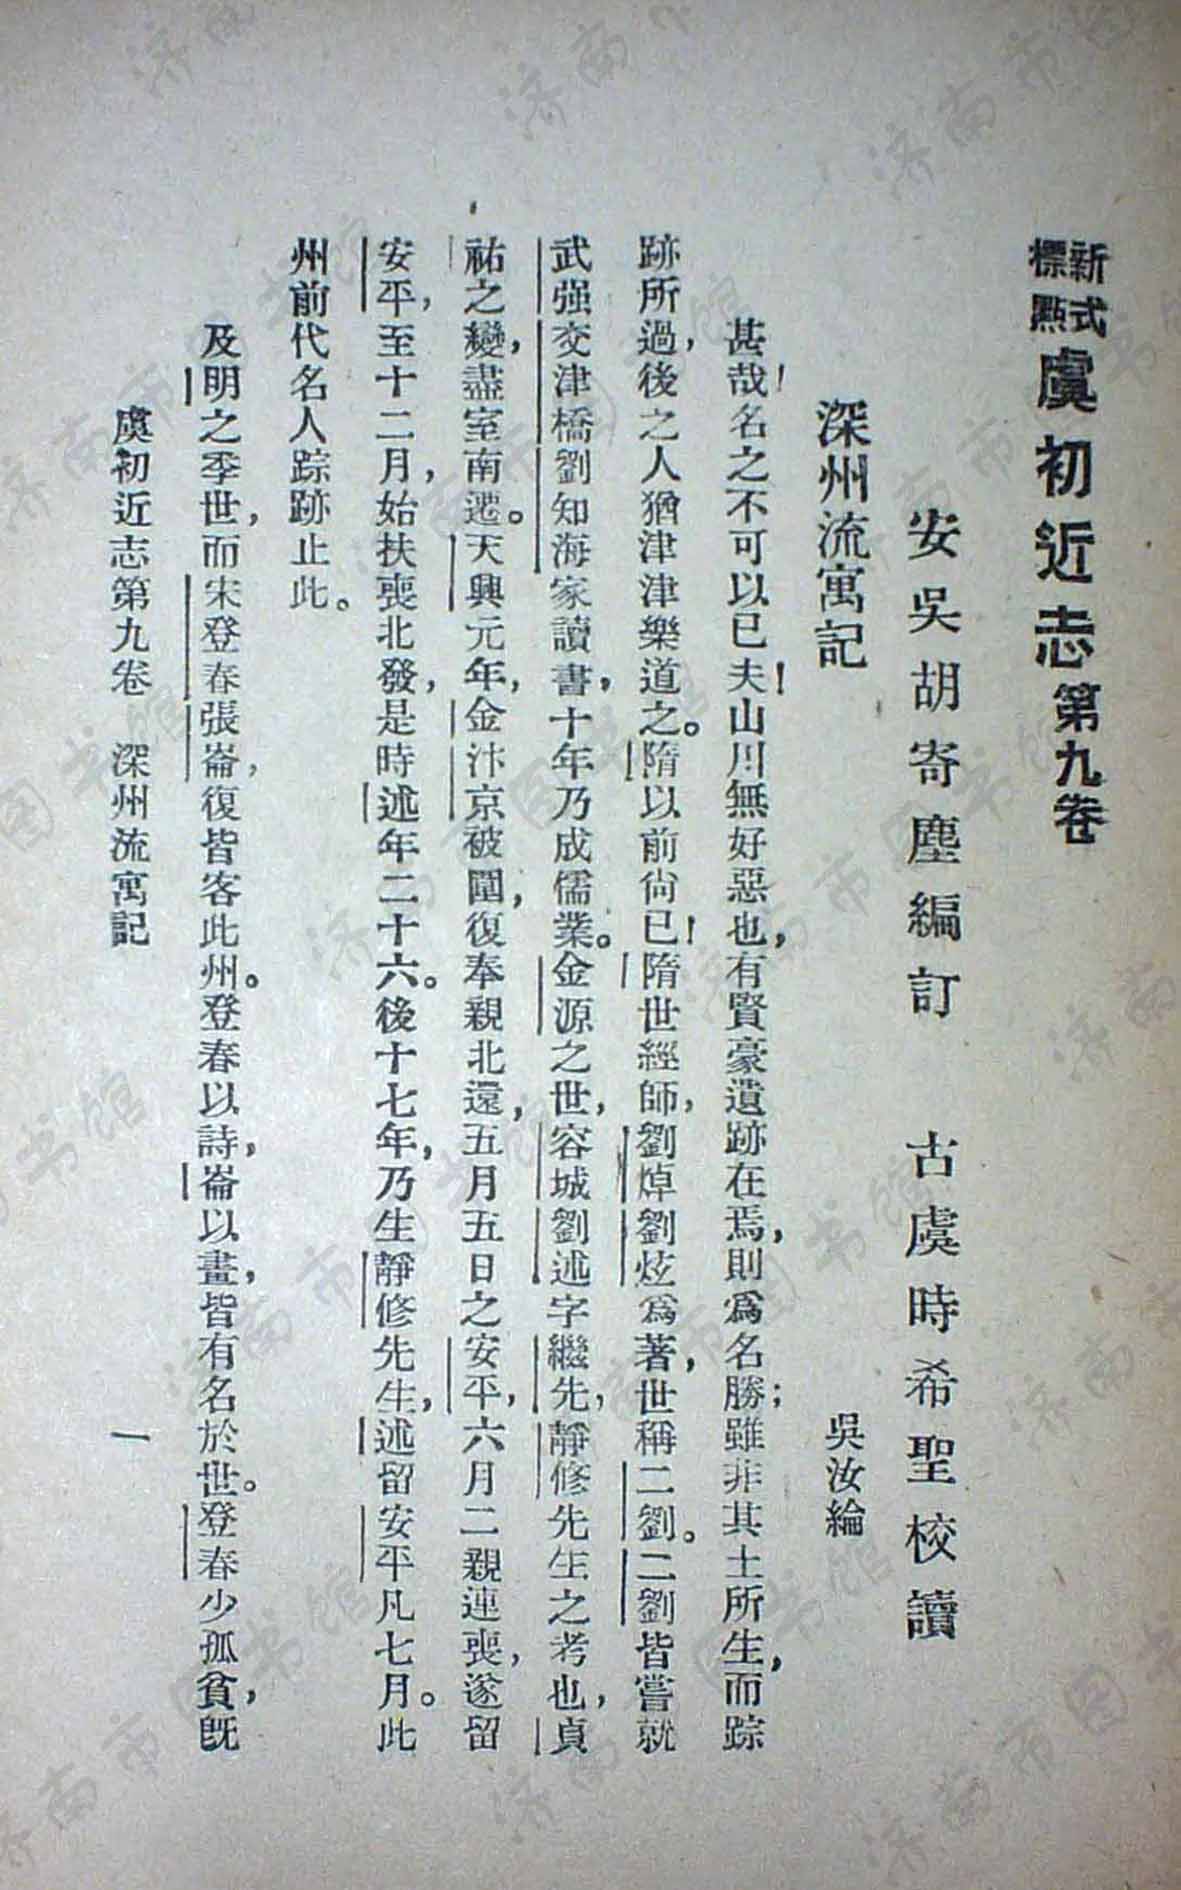 新式標點虞初近志第九卷
安吳胡寄塵編訂　古虞時希聖校讀
深州流寓記　吳汝綸
甚哉！名之不可以已夫！山川無好惡也，有賢豪遺跡在焉，則爲名勝；雖非其土所生，而踪
跡所過，後之人猶津津樂道之。隋以前尙已！隋世經師，劉焯劉炫爲著，世稱二劉。二劉皆嘗就
武强交津橋劉知海家讀書，十年乃成儒業。金源之世，容城劉述字繼先，靜修先生之考也，貞
祐之變，盡室南遷。天興元年，金汴京被圍，復奉親北還，五月五日之安平，六月二親連喪，遂留
安平，至十二月，始扶喪北發，是時述年二十六。後十七年，乃生靜修先生，述留安平凡七月。此
州前代名人踪跡止此。
及明之季世，而宋登春張崙，復皆客此州。登春以詩，崙以畫，皆有名於世。登春少孤貧，旣
虞初近志第九卷　深州流寓記　一
济南市图书馆